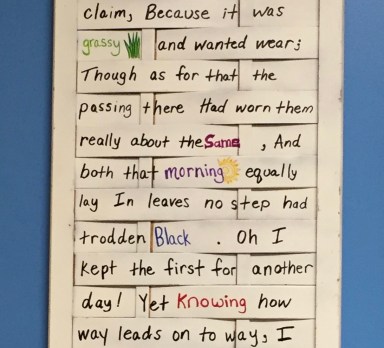 claim, Because it was
grassy and wanted wear;
Though as for that the
passing there Had worn them
really about the Same, And
both that morning equally
lay In leaves no step had
trodden Black. Oh I
Kept the first for another
day! Yet Knowing how
way leads on to way, I